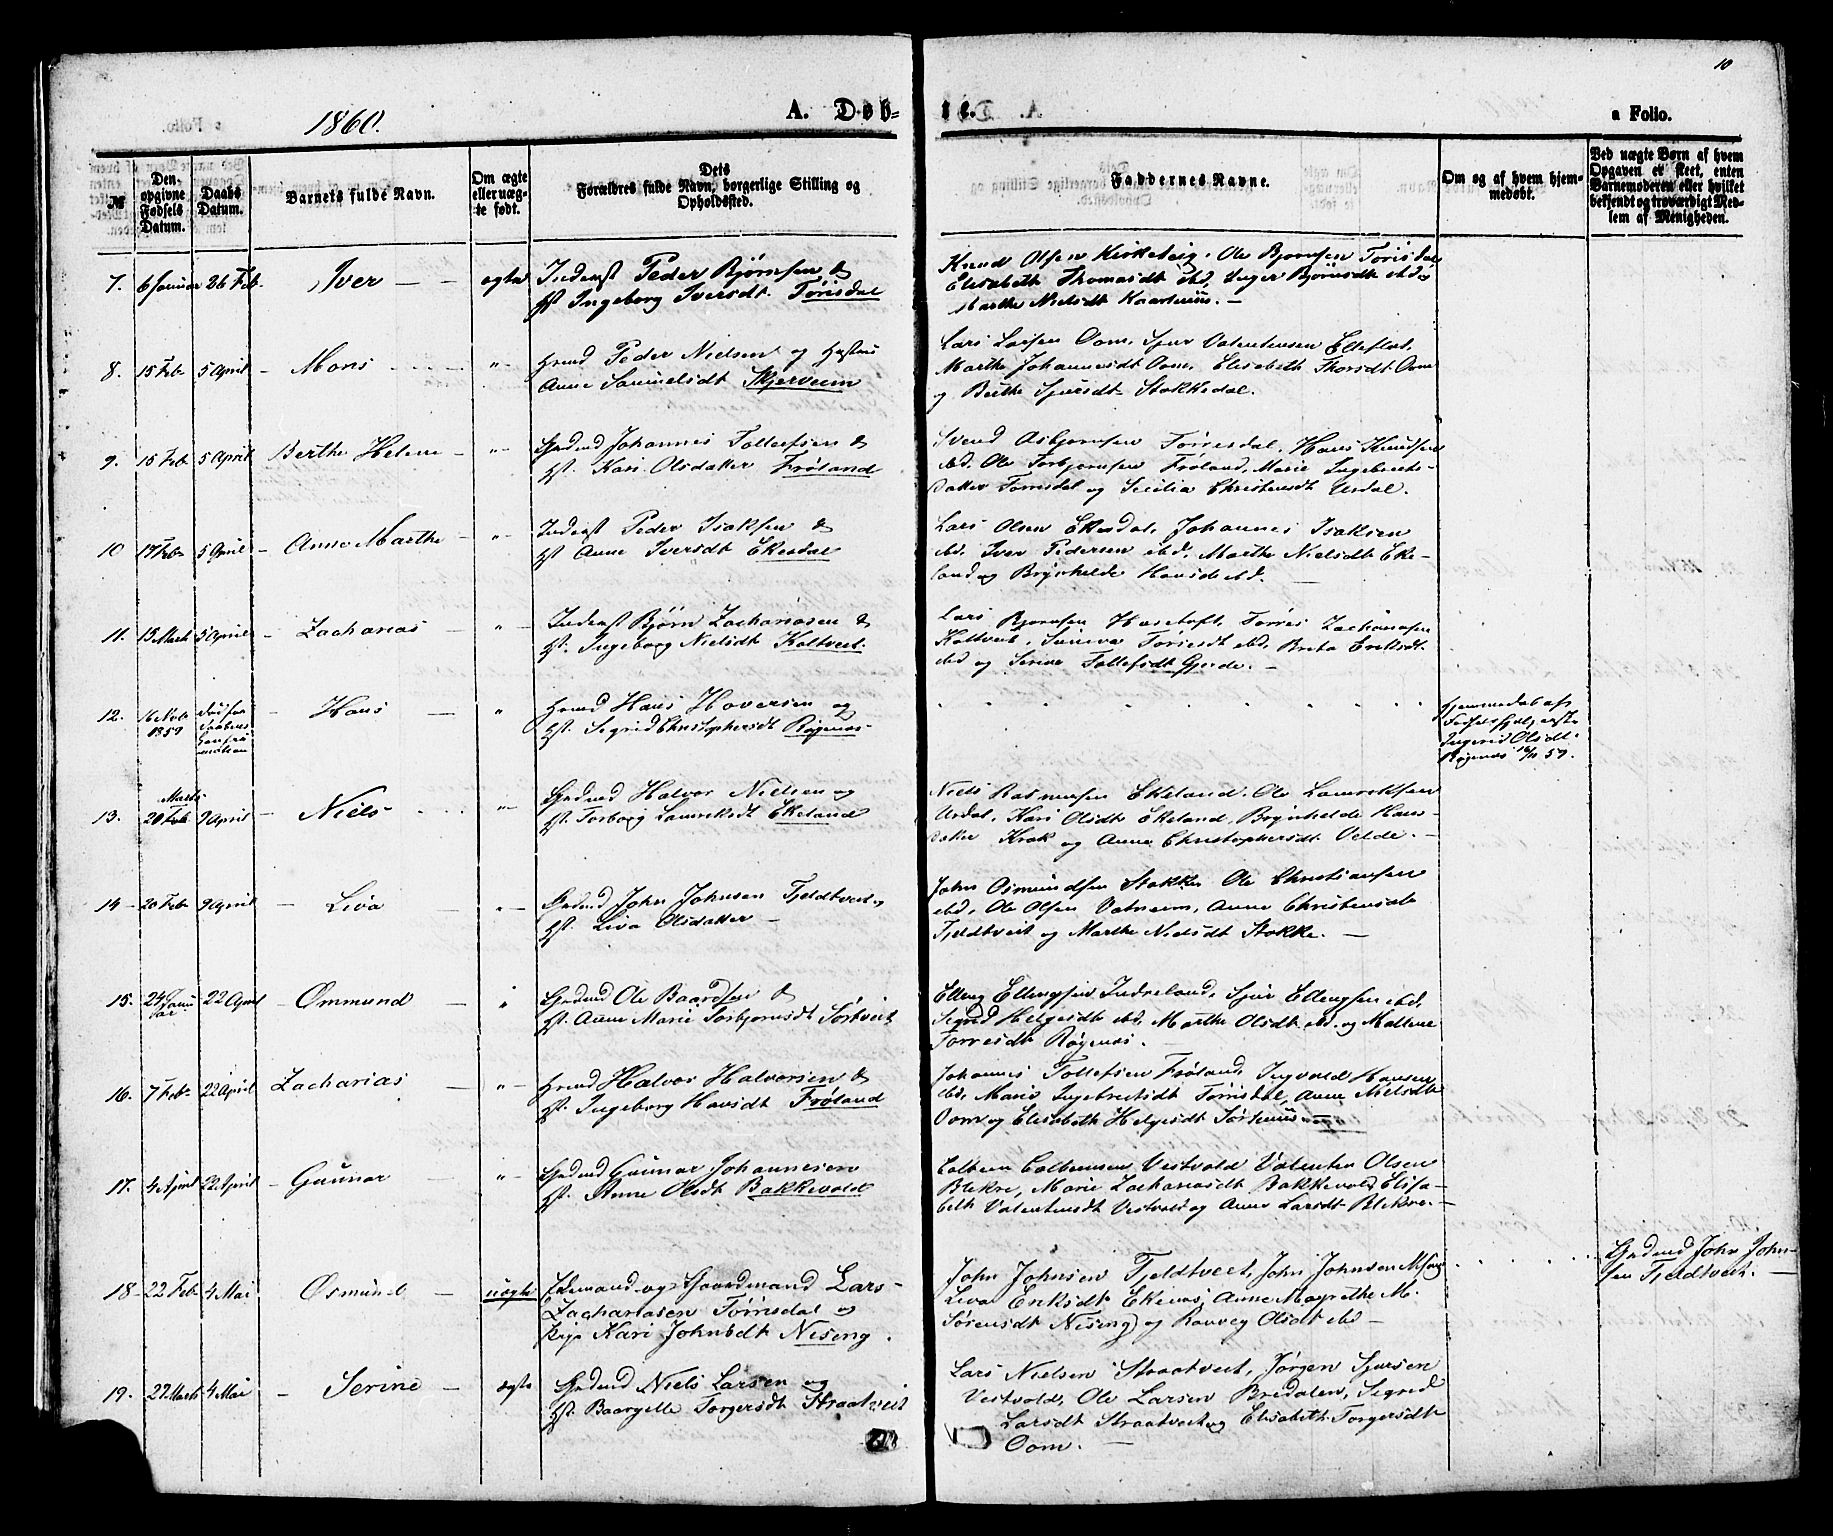 10
1860.
A. Døb-
te.
a Folio.
№
Den opgivne Fødsels Datum.
Daabs Datum.
Barnets fulde Navn.
Om ægte eller uægte født.
Dets Forældres fulde Navn, borgerlige Stilling og Opholdssted.
Faddernes Navne.
Om og af hvem hjemmedøbt.
Ved uægte Børn af hvem Opgaven er skeet, enten Barnemoderen eller hvilket bekjendt og troværdigt Medlem af Menigheden.
7. 6 Januar 26 Feb. Iver — ægte Inderst Peder Bjørnsen &
Hst. Ingeborg Iversdt. Tørrisdal
Knud Olsen Kirkeleig, Ole Bjørnsen Tørrisdal
Elisabeth Thomasdt ibd, Inger Bjørnsdt ibd
Marthe Nielsdt Kaarhuus. —
8. 15 Feb 5 April — Mons "
Grmd Peder Nielsen og Hustru
Anne Samuelsdt Skjerveim
Lars Larsen Oom, Sjur Valentinsen Elleflot,
Marthe Johannesdt Oom, Elisabeth Thorsdt Oom
og Berthe Sjursdt Stokkedal.
9. 15 Feb 5 April Berthe Helene — "
Grdmd Johannes Tollefsen &
Hst. Kari Olsdatter Frøland
Svend Asbjørnsen Tørresdal, Hans Knudsen
ibd. Ole Torbjørnsen Frøland, Marie Ingebrets-
datter Tørrisdal og Secilia Christensdt Urdal.
10 17 Feb 5 April — Anne Marthe — "
Inderst Peder Isaksen &
Hst Anne Iversdt Ekesdal
Lars Olsen Ekesdal, Johannes Isaksen
ibd. Iver Pedersen ibd, Marthe Nielsdt Eke-
land og Brynhelde Hansdt ibd. —
11. 13 Mart 5 April — Zacharias — "
Inderst Bjørn Zachariasen &
Hst. Ingeborg Nielsdt Koltveit.
Lars Bjørnsen Hasetoft, Torres Zachariasen
Koltveit, Suneva Torresdt ibd, Brita Eriksdt
ibd og Serine Tollefsdt Gjerde. —
12. 16 Novb 1859 — Hans — "
Grmd Hans Hoversen og
Hst. Sigrid Christophersdt Røgenæs
Hjemmedøbt af
Ingerid Olsdt
Røgenæs 16/11 59.
13. Marts 20 Feb 9 April — Niels "
Grdmd Halvor Nielsen og
Hst. Torborg Lamrekdt Ekeland
Niels Rasmussen Ekeland, Ole Lamreksen
Urdal, Kari Olsdt Ekeland, Brynhelde Hans-
datter Krok og Anna Christophersdt Velde. —
14 — 20 Feb 9 April — Liva — "
Grdmd John Johnsen Tjeldtveit og
Hst. Liva Olsdatter —
John Osmundsen Stokke, Ole Christiansen
ibd, Ole Olsen Vatneim, Anne Christensdt
Tjeldtveit og Marthe Nielsdt Stokke. —
15. 24 Januar 22 April — Ommund — "
Grdmd Ole Baardsen &
Hst. Anne Marie Torbjørnsdt Sørtveit
Elling Ellingsen Indreland, Sjur Ellingsen ibd,
Sigrid Helgesdt ibd, Marthe Olsdt ibd. og Maltene
Torresdt Røgenæs.
16. 7 Feb 22 April Zacharias — "
Grmd Halvor Halvorsen &
Hst. Ingeborg Hansdt Frøland
Johannes Tollefsen Frøland, Ingvald Hansen
ibd, Marie Ingebretsdt Tørrisdal, Anne Nielsdt
Oom og Elisabeth Helgesdt
17. 4 April 22 April — Gunnar — "
Grdmd Gunnar Johannesen
Hst. Anne Olsdt Bakkevold
Colbein Colbeinsen Vestvold Valentin Olsen
Blekre, Marie Zachariasdt Bakkevold, Elisa-
beth Valentinsdt Vestvold og Anne Larsdt Blekre.
18 — 22 Feb 4 Mai — Osmund — uægte
Enkemand og Gaardmand Lars
Zachariasen Tørrisdal og
Pige Kari Johnsdt Niseng.
John Johnsen Tjeldtveit, John Johnsen Niseng
Liva Eriksdt Ekenæs, Anne Magrethe M.
Sørensdt Niseng og Ranveg Olsdt ibd —
Grdmd John John-
sen Tjeldtveit. —
19. 27 Marts 4 Mai — Serine — ægte
Grdmd Niels Larsen og
Hst. Baargelle Torgersdt Straatveit
Lars Nielsen Straatveit, Jørgen Sjursen
Vestvold, Ole Larsen Bredalen, Sigrid
Larsdt Straatveit og Elisabeth Torgersdt
Oom. —